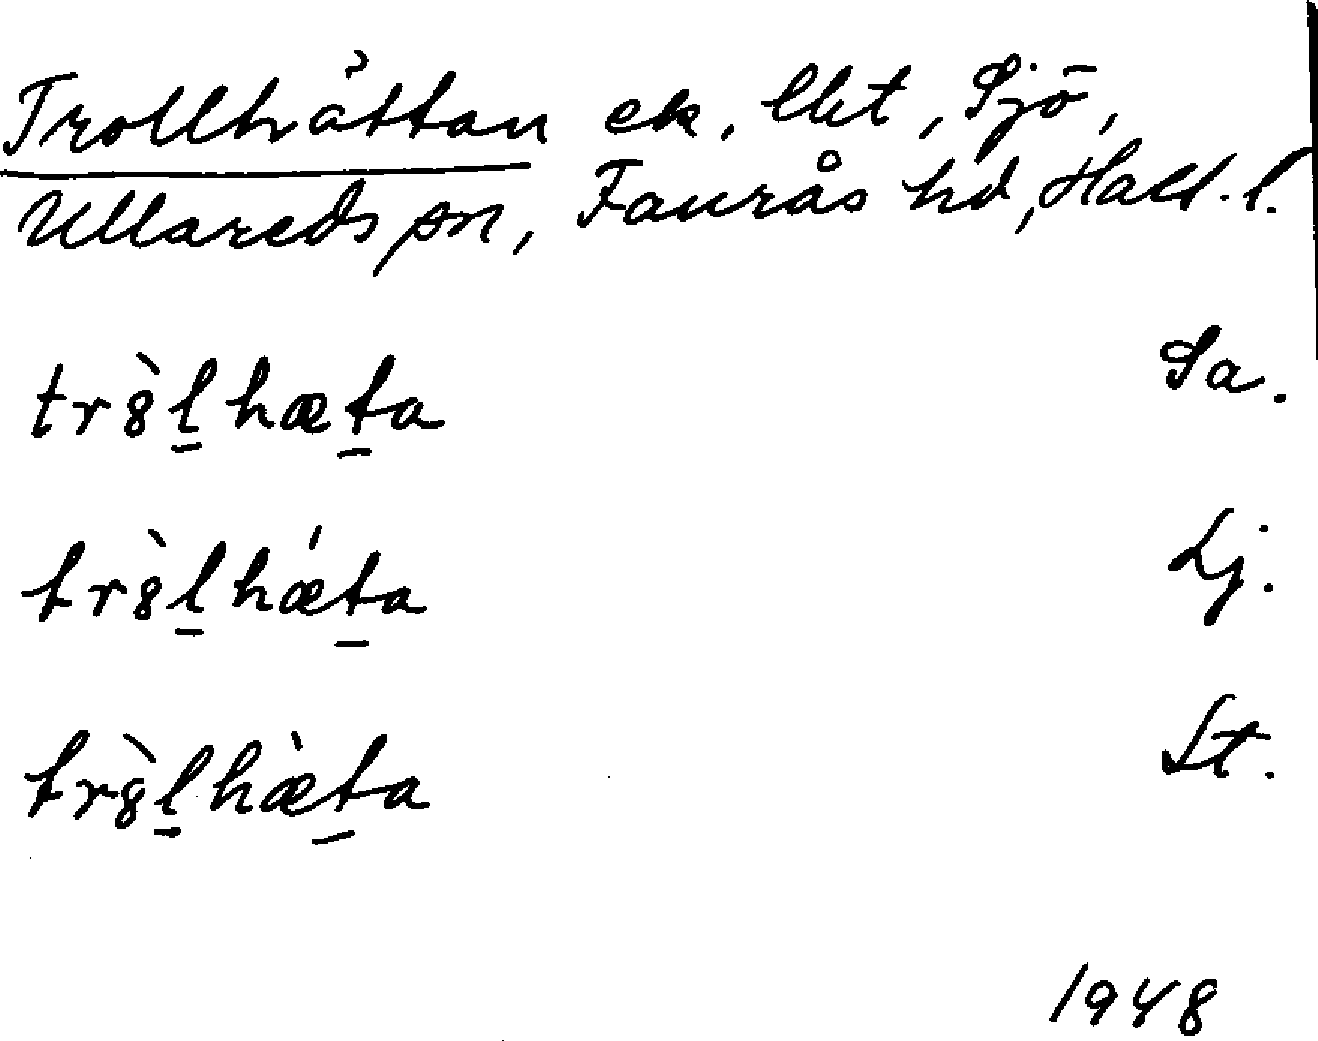 Trollhättan ek, Ukt, Sjö,
Ullareds sn, Faurås hd, Hall. l.
tr8̀l̲hæt̲a Sa.
tr8̀l̲hǽt̲a Lj.
tr8̀l̲hæ̀t̲a St.
1948